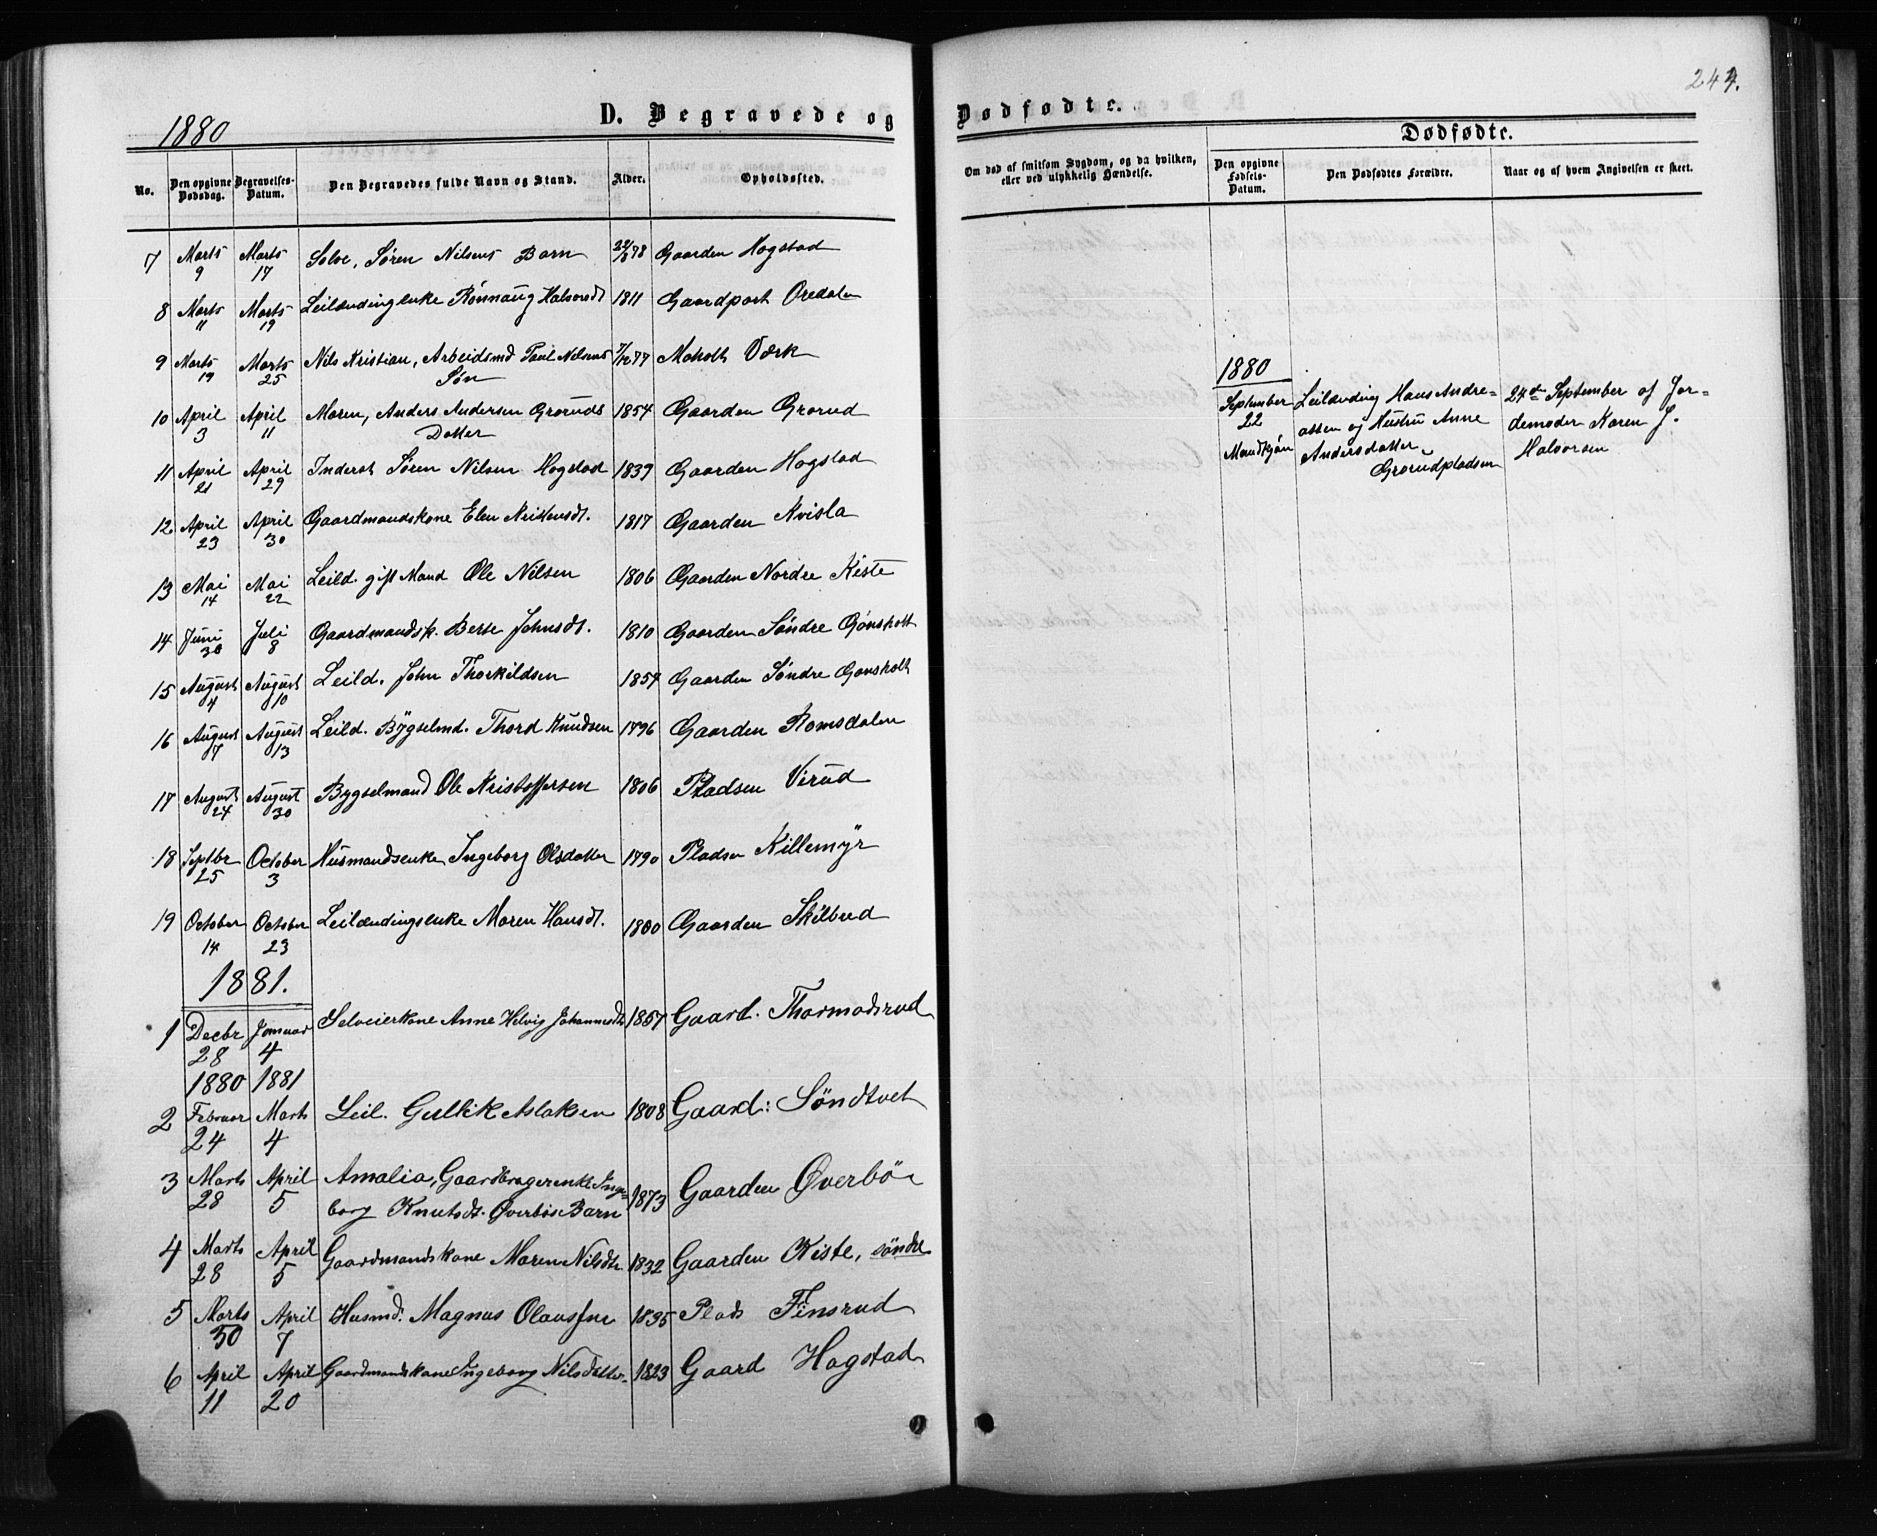 244.
D. Begravede og Dødfødte.
1880
No. Den opgivne Dødsdag. Begravelses-Datum. Den Begravedes fulde Navn og Stand. Alder. Opholdssted.
Om død af smitsom Sygdom, og da hvilken, eller ved ulykkelig Hændelse.
Dødfødte.
Den opgivne Fødsels-Datum. Den Dødfødtes Forældre. Naar og af hvem Angivelsen er skeet.
7 Marts 9 Marts 17 Solve, Søren Nilsens Barn 78 Gaarden Hogstad
8 Marts 11 Marts 19 Leilændingsenke Rønnaug Halvorsdt 1811 Gaardpart Oredalen
9 Marts 19 Marts 25 Nils Kristian, Arbeidsmd Paul Nilsens 7/12 77 Moholt Værk
Søn
10 April 3 April 11 Maren, Anders Andersen Groruds 1854 Gaarden Grorud
Datter
11 April 21 April 29 Inderst Søren Nilsen Hogstad 1839 Gaarden Hogstad
12 April 23 April 30 Gaardmandskone Elen Kristensdt. 1817 Gaarden Kvisla
13 Mai 14 Mai 22 Leild. gift Mand Ole Nilsen 1806 Gaarden Nordre Kiste
14 Juni 30 Juli 8 Gaardmandsk. Berte Johnsdt. 1810 Gaarden Søndre Gonsholt
15 August 4 August 10 Leild. John Thorkildsen 1857 Gaarden Søndre Gonsholt
16 August 7 August 13 Leild. Bygselmd. Thord Knudsen 1796 Gaarden Romsdalen
17 August 24 August 30 Bygselmand Ole Kristoffersen 1806 Pladsen Virud
18 Septbr 25 October 3 Husmandsenke Ingeborg Olsdatter 1790 Pladsen Killemyr
19 October 14 October 23 Leilændingsenke Maren Hansdt. 1800 Gaarden Skilbred
1881.
1 Decbr 28 1880 Januar 4 1881 Selveierkone Anne Helvig Johannesdt 1857 Gaard. Thormodsrud
2 Februar 24 Marts 4 Leil. Gullik Aslaksen 1808 Gaard: Søndtvet
3 Marts 28 April 5 Amalia, Gaardbrugerenke Inge-
borg Knutsdt. Øverbøs Barn 1873 Gaarden Øverbø
4 Marts 28 April 5 Gaardmandskone Maren Nilsdtr. 1832 Gaarden Kiste, søndre
5 Marts 30 April 7 Husmd. Magnus Olaussen 1835 Plads Finsrud
6 April 11 April 20 Gaardmandskone Ingeborg Nilsdatter 1823 Gaard Hogstad
1880
September 22 Mandkjøn
Leilænding Hans Andre-
assen og Hustru Anne
Andersdatter
Grorudpladsen
24de September af Jor-
demoder Karen J.
Halvorsen